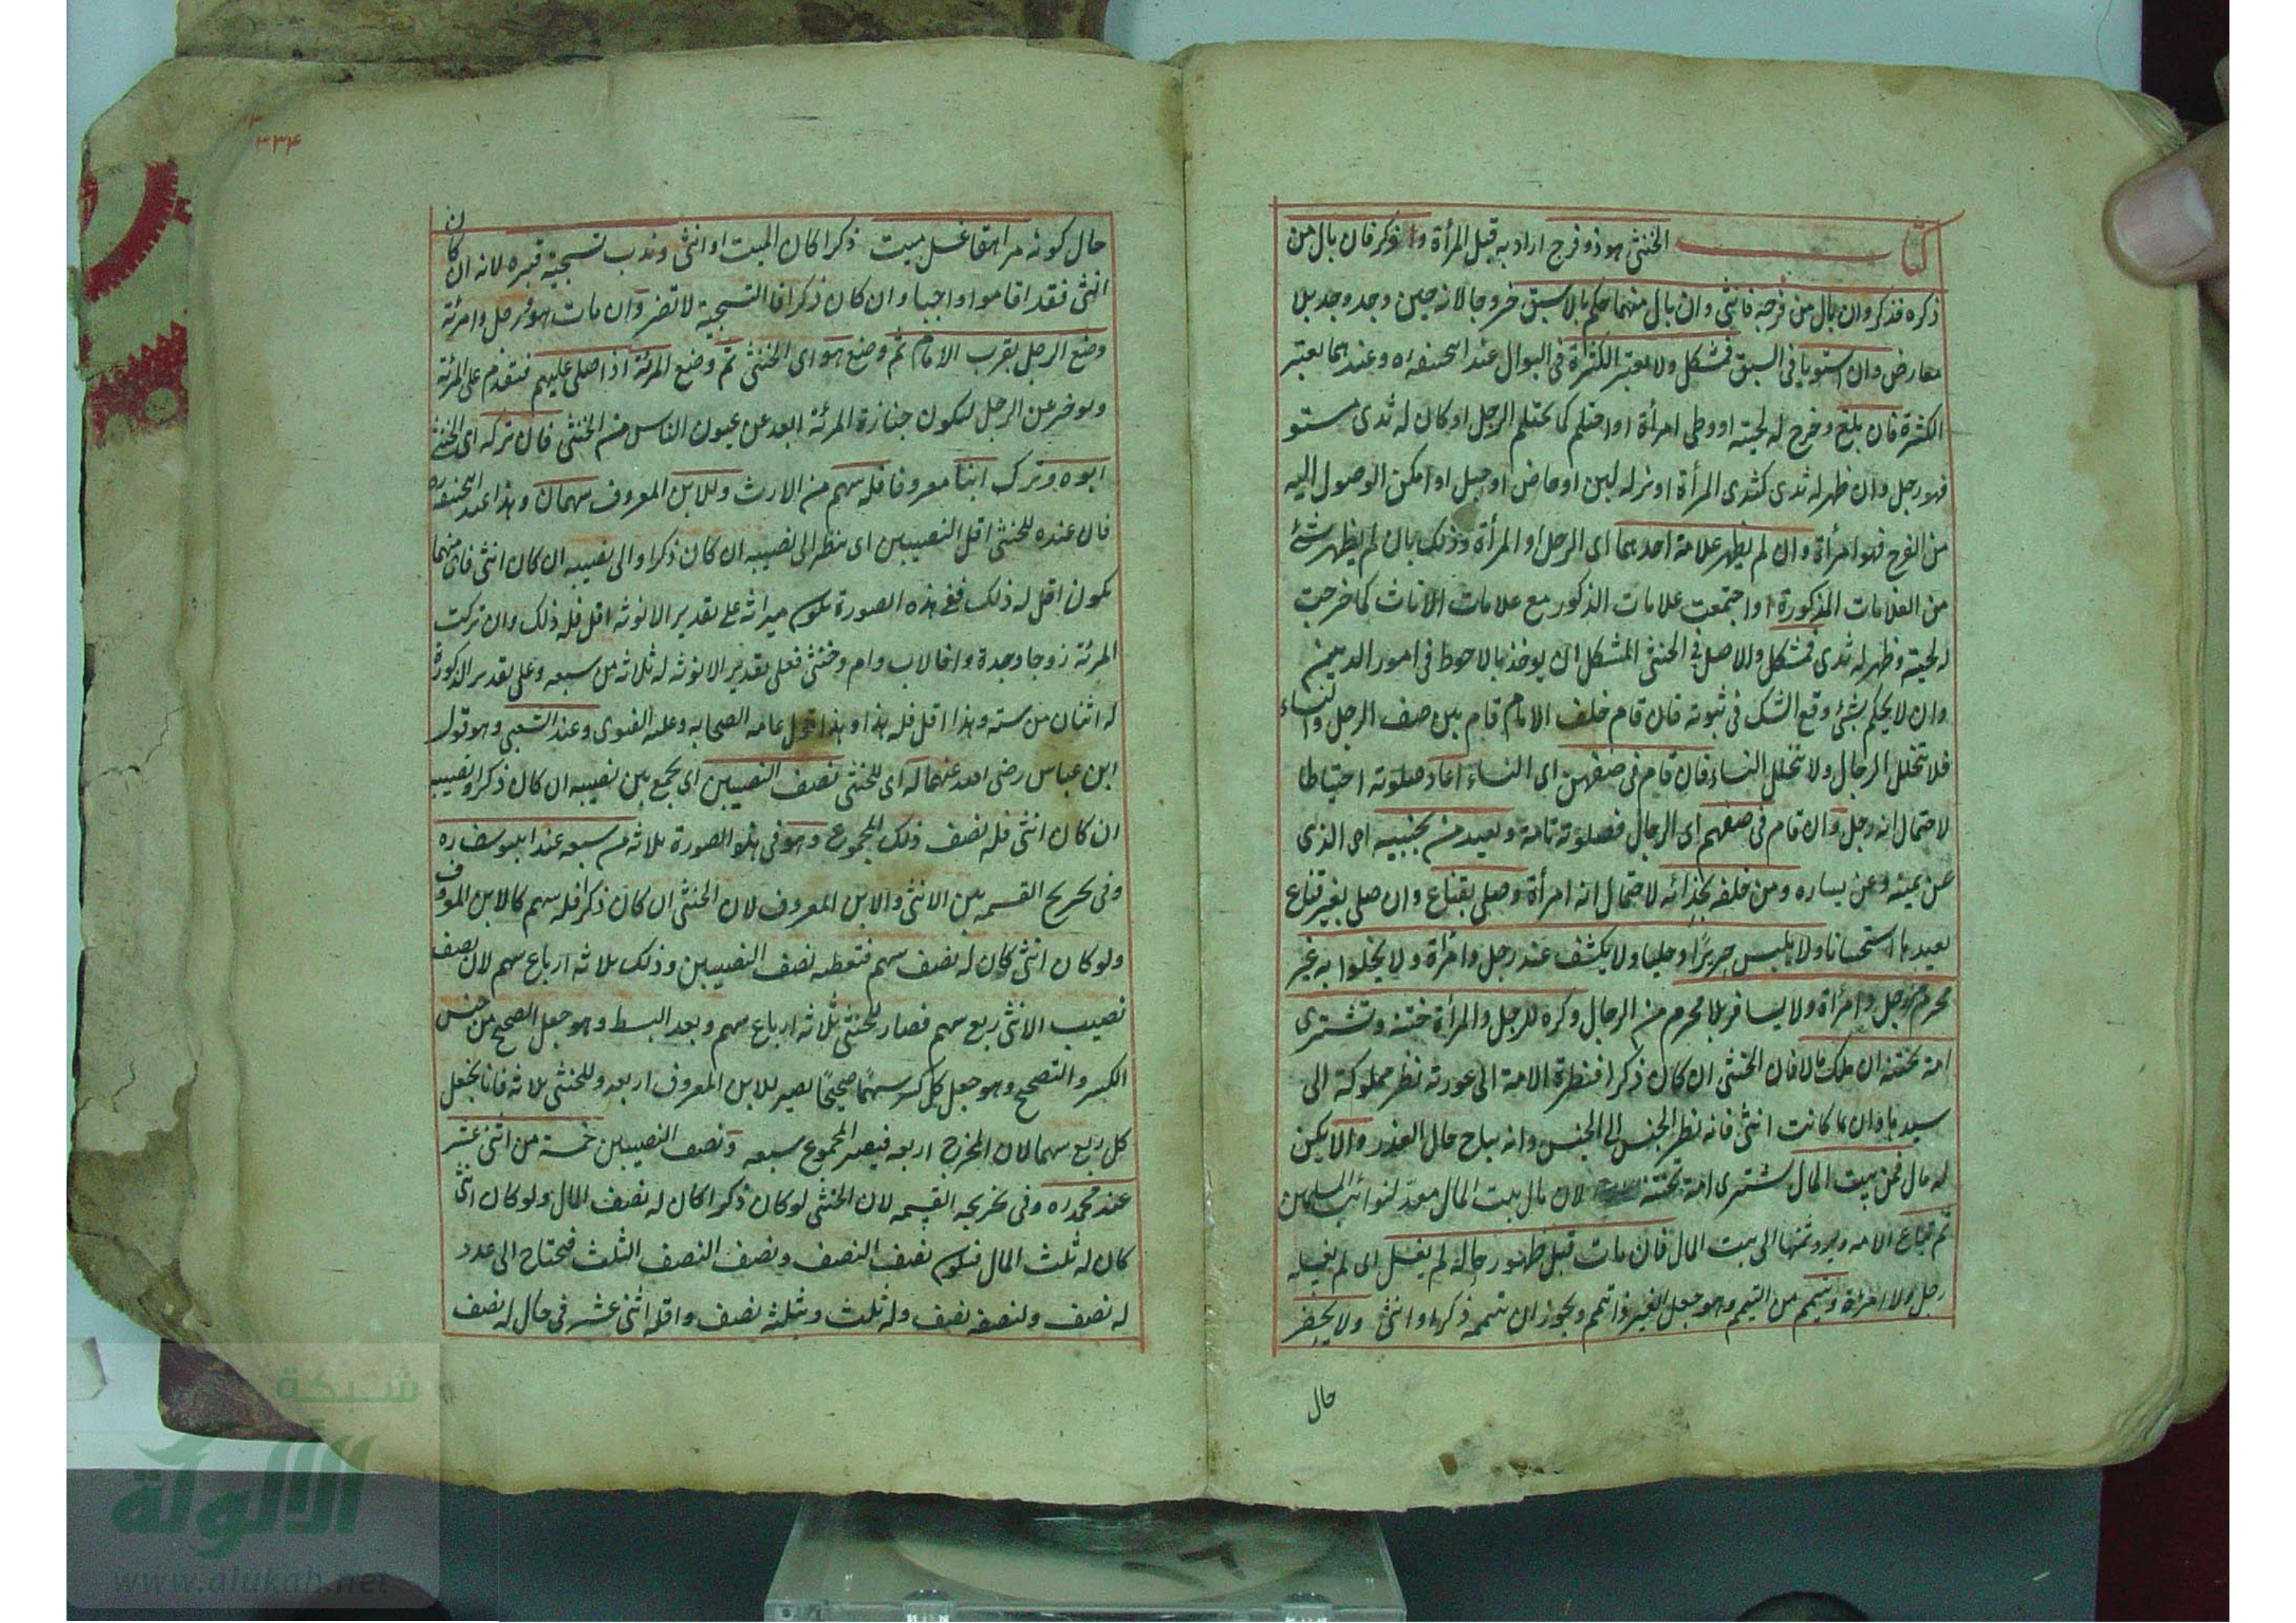 كتاب الخنثى هو ذو فرج اراد به قبل المرأة وذكر فان بال من
ذكره فذكر وان بال من فرجه فانثى وان بال منهما حكم بالاسبق خروجا لانه حين وجد وجد بلا
معارض وان استويا فى السبق فمشكل ولا يعتبر الكثرة فى البول عند ابيحنيفه ره وعندهما يعتبر
الكثرة فان بلغ وخرج له لحيته او وطى امرأة او احتلم كما يحتلم الرجل او كان له ثدى مستو
فهو رجل وان ظهر له ثدى كثدى المرأة او نزل له لبن او حاض او حبل او امكن الوصول اليه
من الفرج فهو امرأة وان لم يظهر علامة احدهما اى الرجل او المرأة وذلك بان لم يظهر شئ
من العلامات المذكورة او اجتمعت علامات الذكور مع علامات الاناث كما خرجت
له لحية وظهر له ثدى فمشكل والاصل فى الخنثى المشكل ان يوخذ بالاحوط فى امور الدين
وان لا يحكم بشئ وقع الشك فى ثبوته فان قام خلف الامام قام بين صف الرجل والنساء
فلا تتخلل الرجال ولا تتخلل النساء فان قام فى صفهن اى النساء اعاد صلوته احتياطا
لاحتمال انه رجل وان قام فى صفهم اى الرجال فصلوته تامة ويعيد من بجنبيه اى الذى
عن يمينه وعن يساره ومن خلفه بحذائه لاحتمال انه امرأة وصلى بقناع وان صلى بغير قناع
يعيدها استحسانا ولا يلبس حريرا وحليا ولا يكشف عند رجل وامرأة ولا يخلوا به غير
محرم رجل وامرأة ولا يسافر بلا محرم من الرجال وكره للرجل والمرأة ختنه وتشترى
امة تختنه ان ملك مالا فان الخنثى ان كان ذكرا فنظرة الامة الى عورته نظر مملوكة الى
سيدها وان كانت انثى فانه نظر الجنس الى الجنس وانه يباح حال العذر والا يكن
له مال فمن بيت المال يشترى امة تختنه لان مال بيت المال معد لنوائب المسلمين
ثم تباع الامه ويرد ثمنها الى بيت المال فان مات قبل ظهور حاله لم يغسل اى لم يغسله
رجل ولا امرأة ويتيمم من التيمم وهو جعل الغير ذا تيمم ويجوز ان تيممه ذكرا وانثى ولا يحضر
حال
٣٣٤
حال كونه مراهقا غسل ميت ذكرا كان الميت او انثى وندب تسجية قبره لانه ان كان
انثى فقد اقاموا واجبا وان كان ذكرا فالتسجية لا تضر وان مات هو ورجل وامرئة
وضع الرجل بقرب الامام ثم وضع هو اى الخنثى ثم وضع المرئة اذا صلى عليهم فتقدم على المرئة
ويوخر عن الرجل لتكون جنازة المرئة ابعد عن عيون الناس من الخنثى فان تركه اى الخنثى
ابوه وترك ابنا معروفا فله سهم من الارث وللابن المعروف سهمان وهذا عند ابيحنيفه ره
فان عنده للخنثى اقل النصيبين اى ينظر الى نصيبه ان كان ذكرا والى نصيبه ان كان انثى فاى منهما
يكون اقل له ذلك ففى هذه الصورة يكون ميراثه على تقدير الانوثه اقل فله ذلك وان تركت
المرئة زوجا وجدة واخا لاب وام وخنثى فعلى تقدير الانوثه له ثلاثه من سبعه وعلى تقدير الذكورة
له اثنان من سته وهذا اقل فله هذا وهذا قول عامه الصحابه وعليه الفتوى وعند الشعبى وهو قول
ابن عباس رضى الله عنهما له اى للخنثى نصف النصيبين اى يجمع بين نصيبه ان كان ذكرا ونصيبه
ان كان انثى فله نصف ذلك المجموع وهو فى هذه الصورة ثلاثه من سبعه عند ابيوسف ره
وفى تخريج القسمه بين الانثى والابن المعروف لان الخنثى ان كان ذكرا فله سهم كالابن المعروف
ولو كان انثى كان له نصف سهم فتعطيه نصف النصيبين وذلك ثلاثه ارباع سهم لان نصف
نصيب الانثى ربع سهم فصار للخنثى ثلاثه ارباع سهم وبعد البسط وهو جعل الصحيح من جنس
الكسر والتصحيح وهو جعل كل كسر سهما صحيحا يصير للابن المعروف اربعه وللخنثى ثلاثه فانا نجعل
كل ربع سهما لان المخرج اربعه فيصير المجموع سبعه ونصف النصيبين خمسة من اثنى عشر
عند محمد ره وفى تخريجه القسمه لان الخنثى لو كان ذكرا كان له نصف المال ولو كان انثى
كان له ثلث المال فيكون نصف النصف ونصف الثلث فيحتاج الى عدد
له نصف ولنصفه نصف وله ثلث وثلثه نصف واقله اثنى عشر فى حال له نصف
شبكة
الألوكة
www.alukah.net